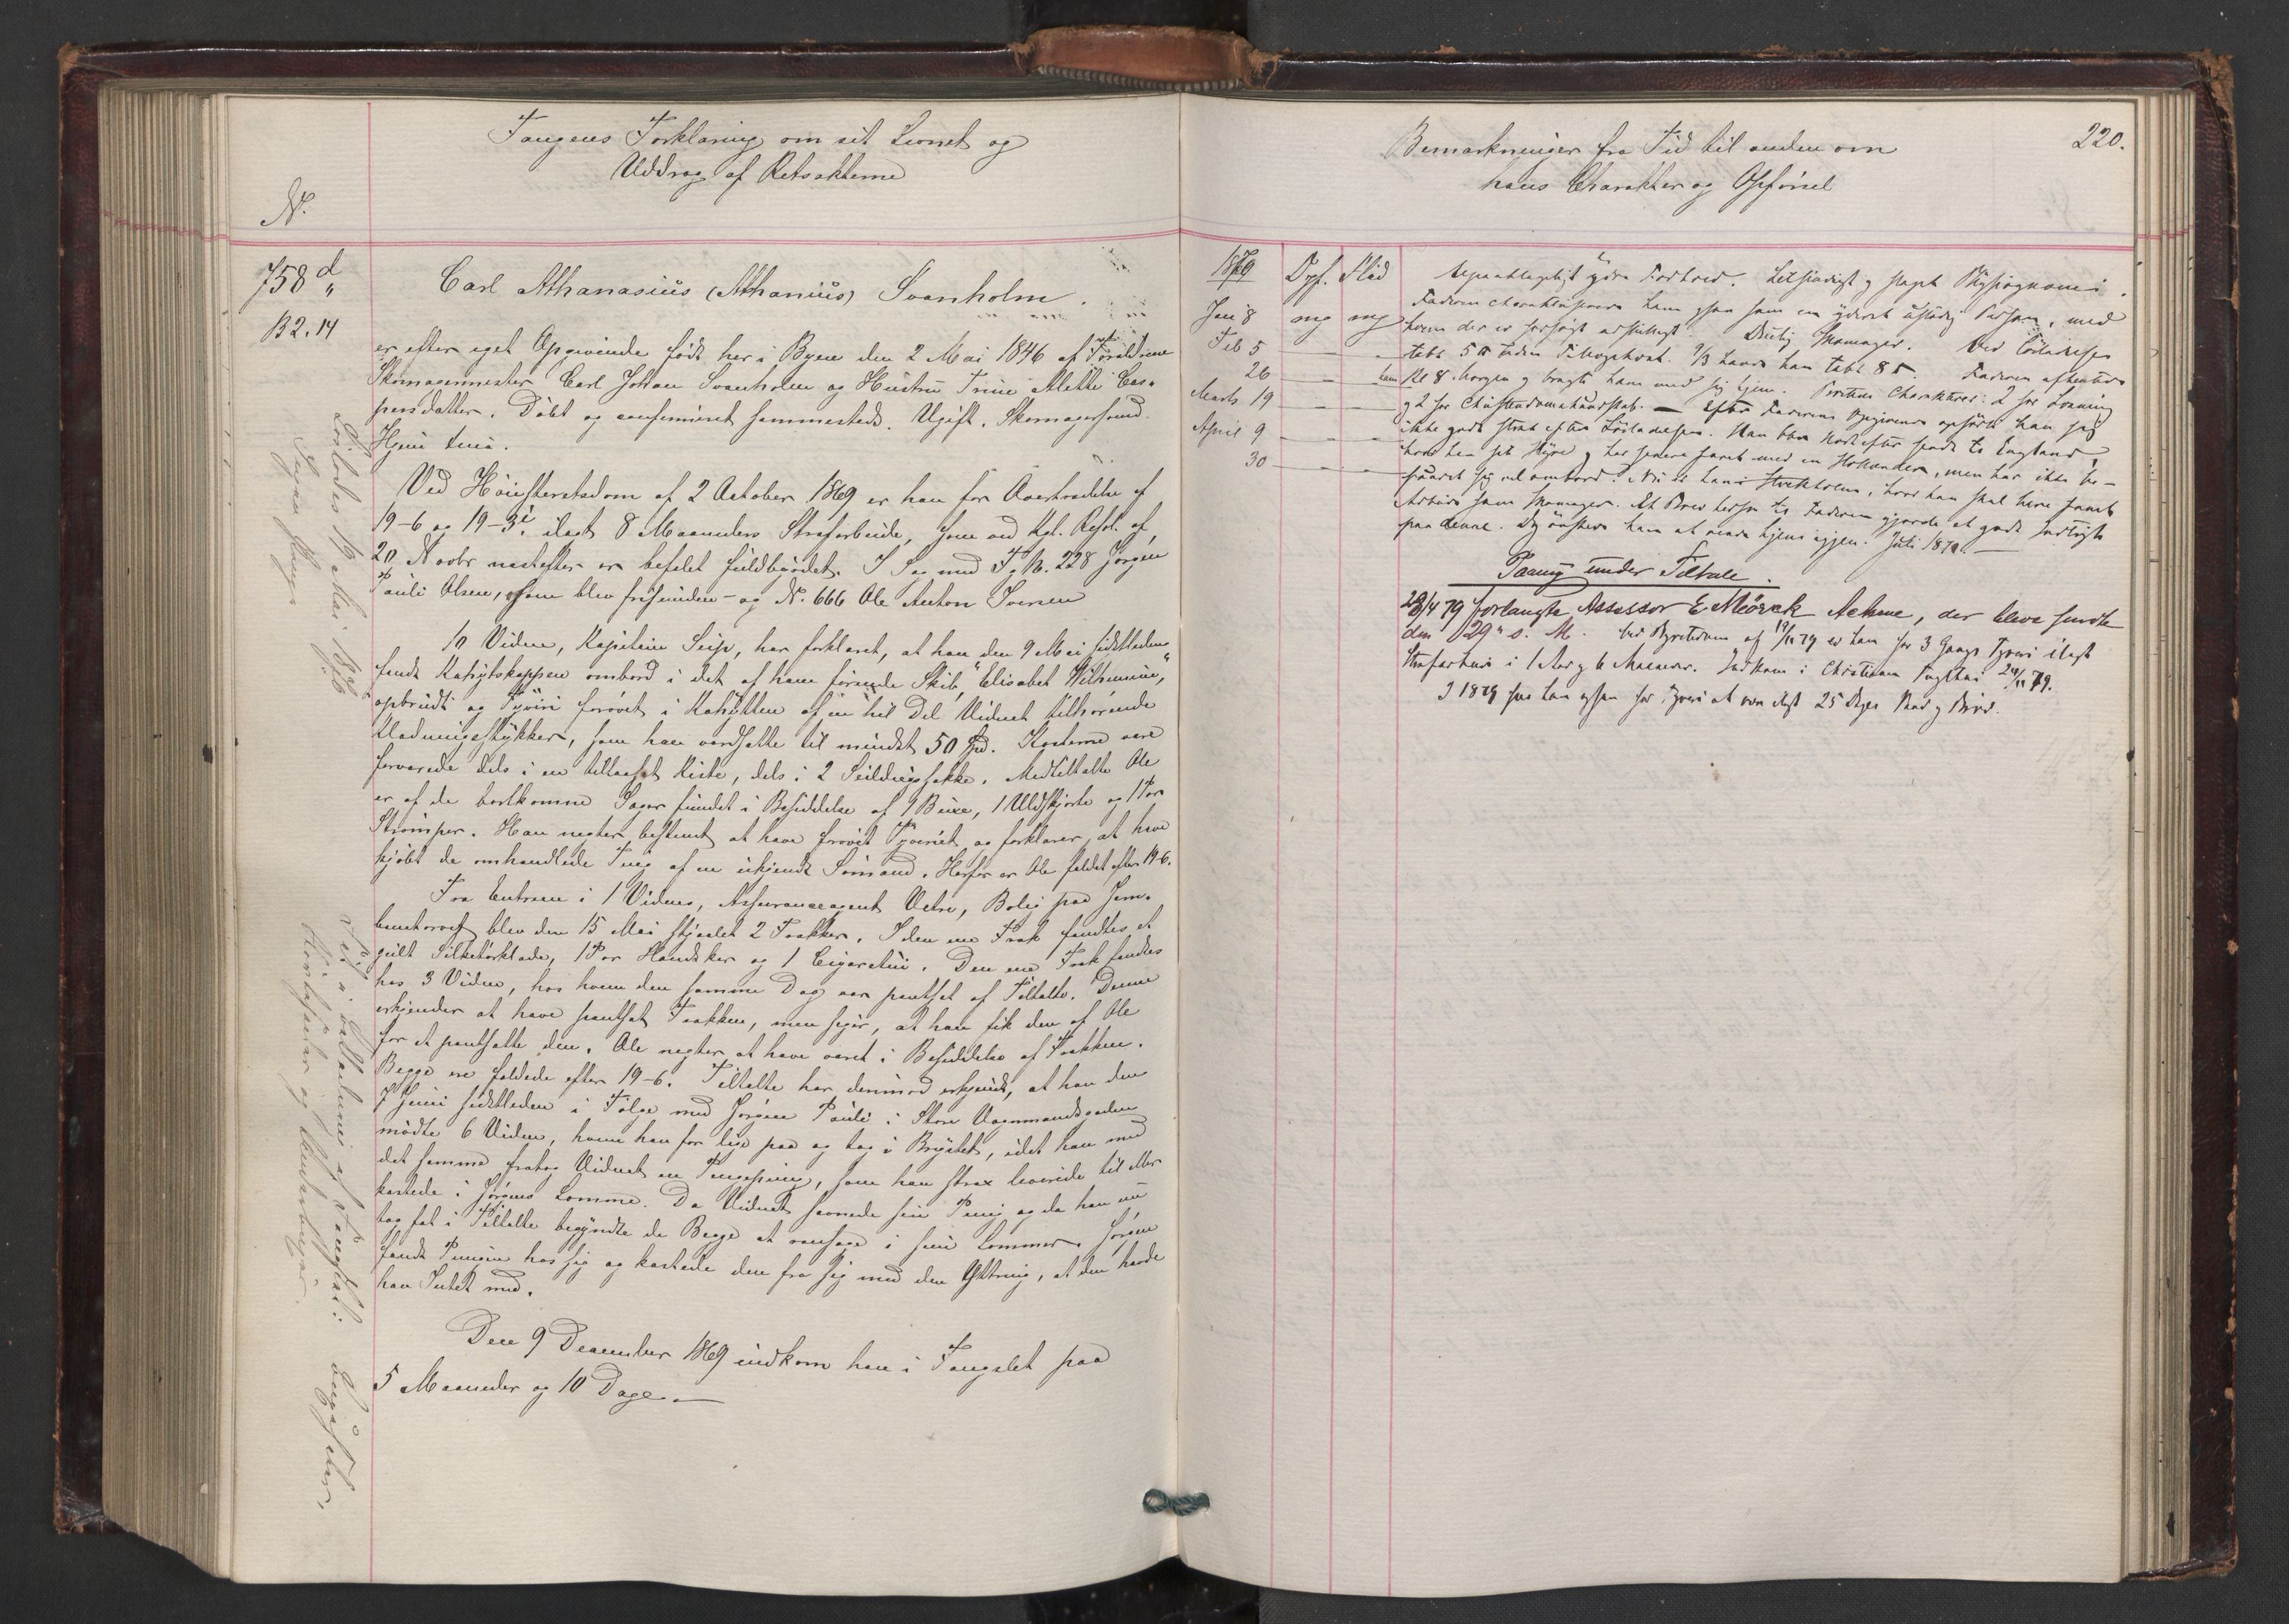 Fangens Forklaring om sit Levnet og
Uddrag af Retsakterne
N.
758 d
B2. 14
Carl Athanasius (Athanius) Svanholm.
er efter eget Opgivende født her i Byen den 2 Mai 1846 af Forældrene
Skomagermester Carl Johan Svanholm og Hustru Trine Mette Cas-
persdatter. Døbt og confirmeret sammesteds. Ugift. Skomagersvend.
Hjem
Ved Høiesteretsdom af 2 October 1869 er han for Overtrædelse af
19-6 og 19-3 ilagt 8 Maaneders Strafarbeide, som ved Kgl. Resol. af
20 Novbr næstefter er befalet fuldbyrdet. I Sag med Fg N. 228 Jørgen
Pauli Olsen, som blev frifunden - og N. 666 Ole Anton Iversen
10 Vidne, Kapitain Seip, har forklaret, at han den 9 Mai sidstleden
fandt Kahytskappen ombord i det af ham førende Skib, "Elisabet Wilhelmine,"
opbrudt og Tyveri forøvet i Kahytten af en hel Del Vidnet tilhørende
Klædningsstykker, som han værdsatte til mindst 50 Spd. Kosterne vare
forvarede dels i en tillaaset Kiste, dels i 2 Seildugssække. Medtiltalte Ole
er af de bortkomne Sager fundet i Besiddelse af 1 Buxe, 1 Uldskjorte og 1 Par
Strømper. Han negter bestemt at have forøvet Tyveriet og forklarer at have
kjøbt de omhandlede Ting af en ukjendt Sømand. Herfor er Ole fældet efter 19-6.
Fra Entreen i 1 Vidnes, Assuranceagent Vetre, Bolig paa Jern-
banetorvet blev den 15 Mai stjaalet 2 Frakker. I den ene Frak fandtes et
gult Silketørklæde, 1 Par Handsker og 1 Cigaretui. Den ene Frak fandtes
hos 3 Vidne, hos hvem den samme Dag var pantsat af Tiltalte. Denne
erkjender at have pantsat Frakken, men siger, at han fik den af Ole
for at pantsætte den. Ole negter at have været i Besiddelse af Frakken.
Begge ere fældede efter 19-6. Tiltalte har derimod erkjendt, at han den
7 Juni sidstleden i Følge med Jørgen Pauli i Store Vognmandsgaden
mødte 6 Vidne, hvem han for lige paa og tog i Brystet, idet han med
det samme fratog Vidnet en Pengepung, som han strax leverede til eller
kastede i Jørgens Lomme. Da Vidnet savnede sin Pung og da han nu
tog fat i Tiltalte begyndte de Begge at ransage i sine Lommer. Jørgen
fandt Pungen hos sig og kastede den fra sig med den Yttring, at den havde
han Intet med.
Den 9 December 1869 indkom han i Fængslet paa
5 Maaneder og 10 Dage.
Løslodes 19 Mai 1870
Bemærkninger fra Tid til anden om
hans Charakter og Opførsel
220.
1869 Opf. Flid
Jan 8 mg mg
Feb 5
26
Marts 19
April 9
30
ydre Forhold. Letsindigt og slapt Physiognomi.
Faderen charakteriserer ham ogsaa som en yderst ustadig Person, med
hvem der er forsøgt adskilligt. Dulig Skomager. Ved Løsladelsen
tabt 5 ℔ siden Tilvægtkomst. havde han tabt 8 ℔. Faderen afhentede
ham Kl 8 Morgen og bragte ham med sig hjem. Charakterer: 2 for Læsning
og 2 for Christendomskundskab. — Efter Faderens Opgivende opførte han sig
ikke godt strax efter Løsladelsen. Han blev kort efter sendt til England,
hvor han fik Hyre og har senere faret med en Hollænder, men har ikke be-
fundet sig vel ombord. Nu er han i Stockholm, hvor han skal have faaet
Arbeide som Skomager. Et Brev herfra til Faderen gjorde et godt Indtryk
paa denne. Og ønsker ham at vende hjem igjen. Juli 187
Paany under Tiltale.
28/4 79 forlangte Assessor E Mörck Acterne, der bleve sendte
den 29" s. M. Ved Byretsdom af 19/11 79 er han for 3 Gangs Tyveri ilagt
Strafarbeide i 1 Aar og 6 Maaneder. Indkom i Christiania Tugthus 29/11 79.
I 1879 han ogsaa for Tyveri at være ilagt 25 Dages Vand og Brød.